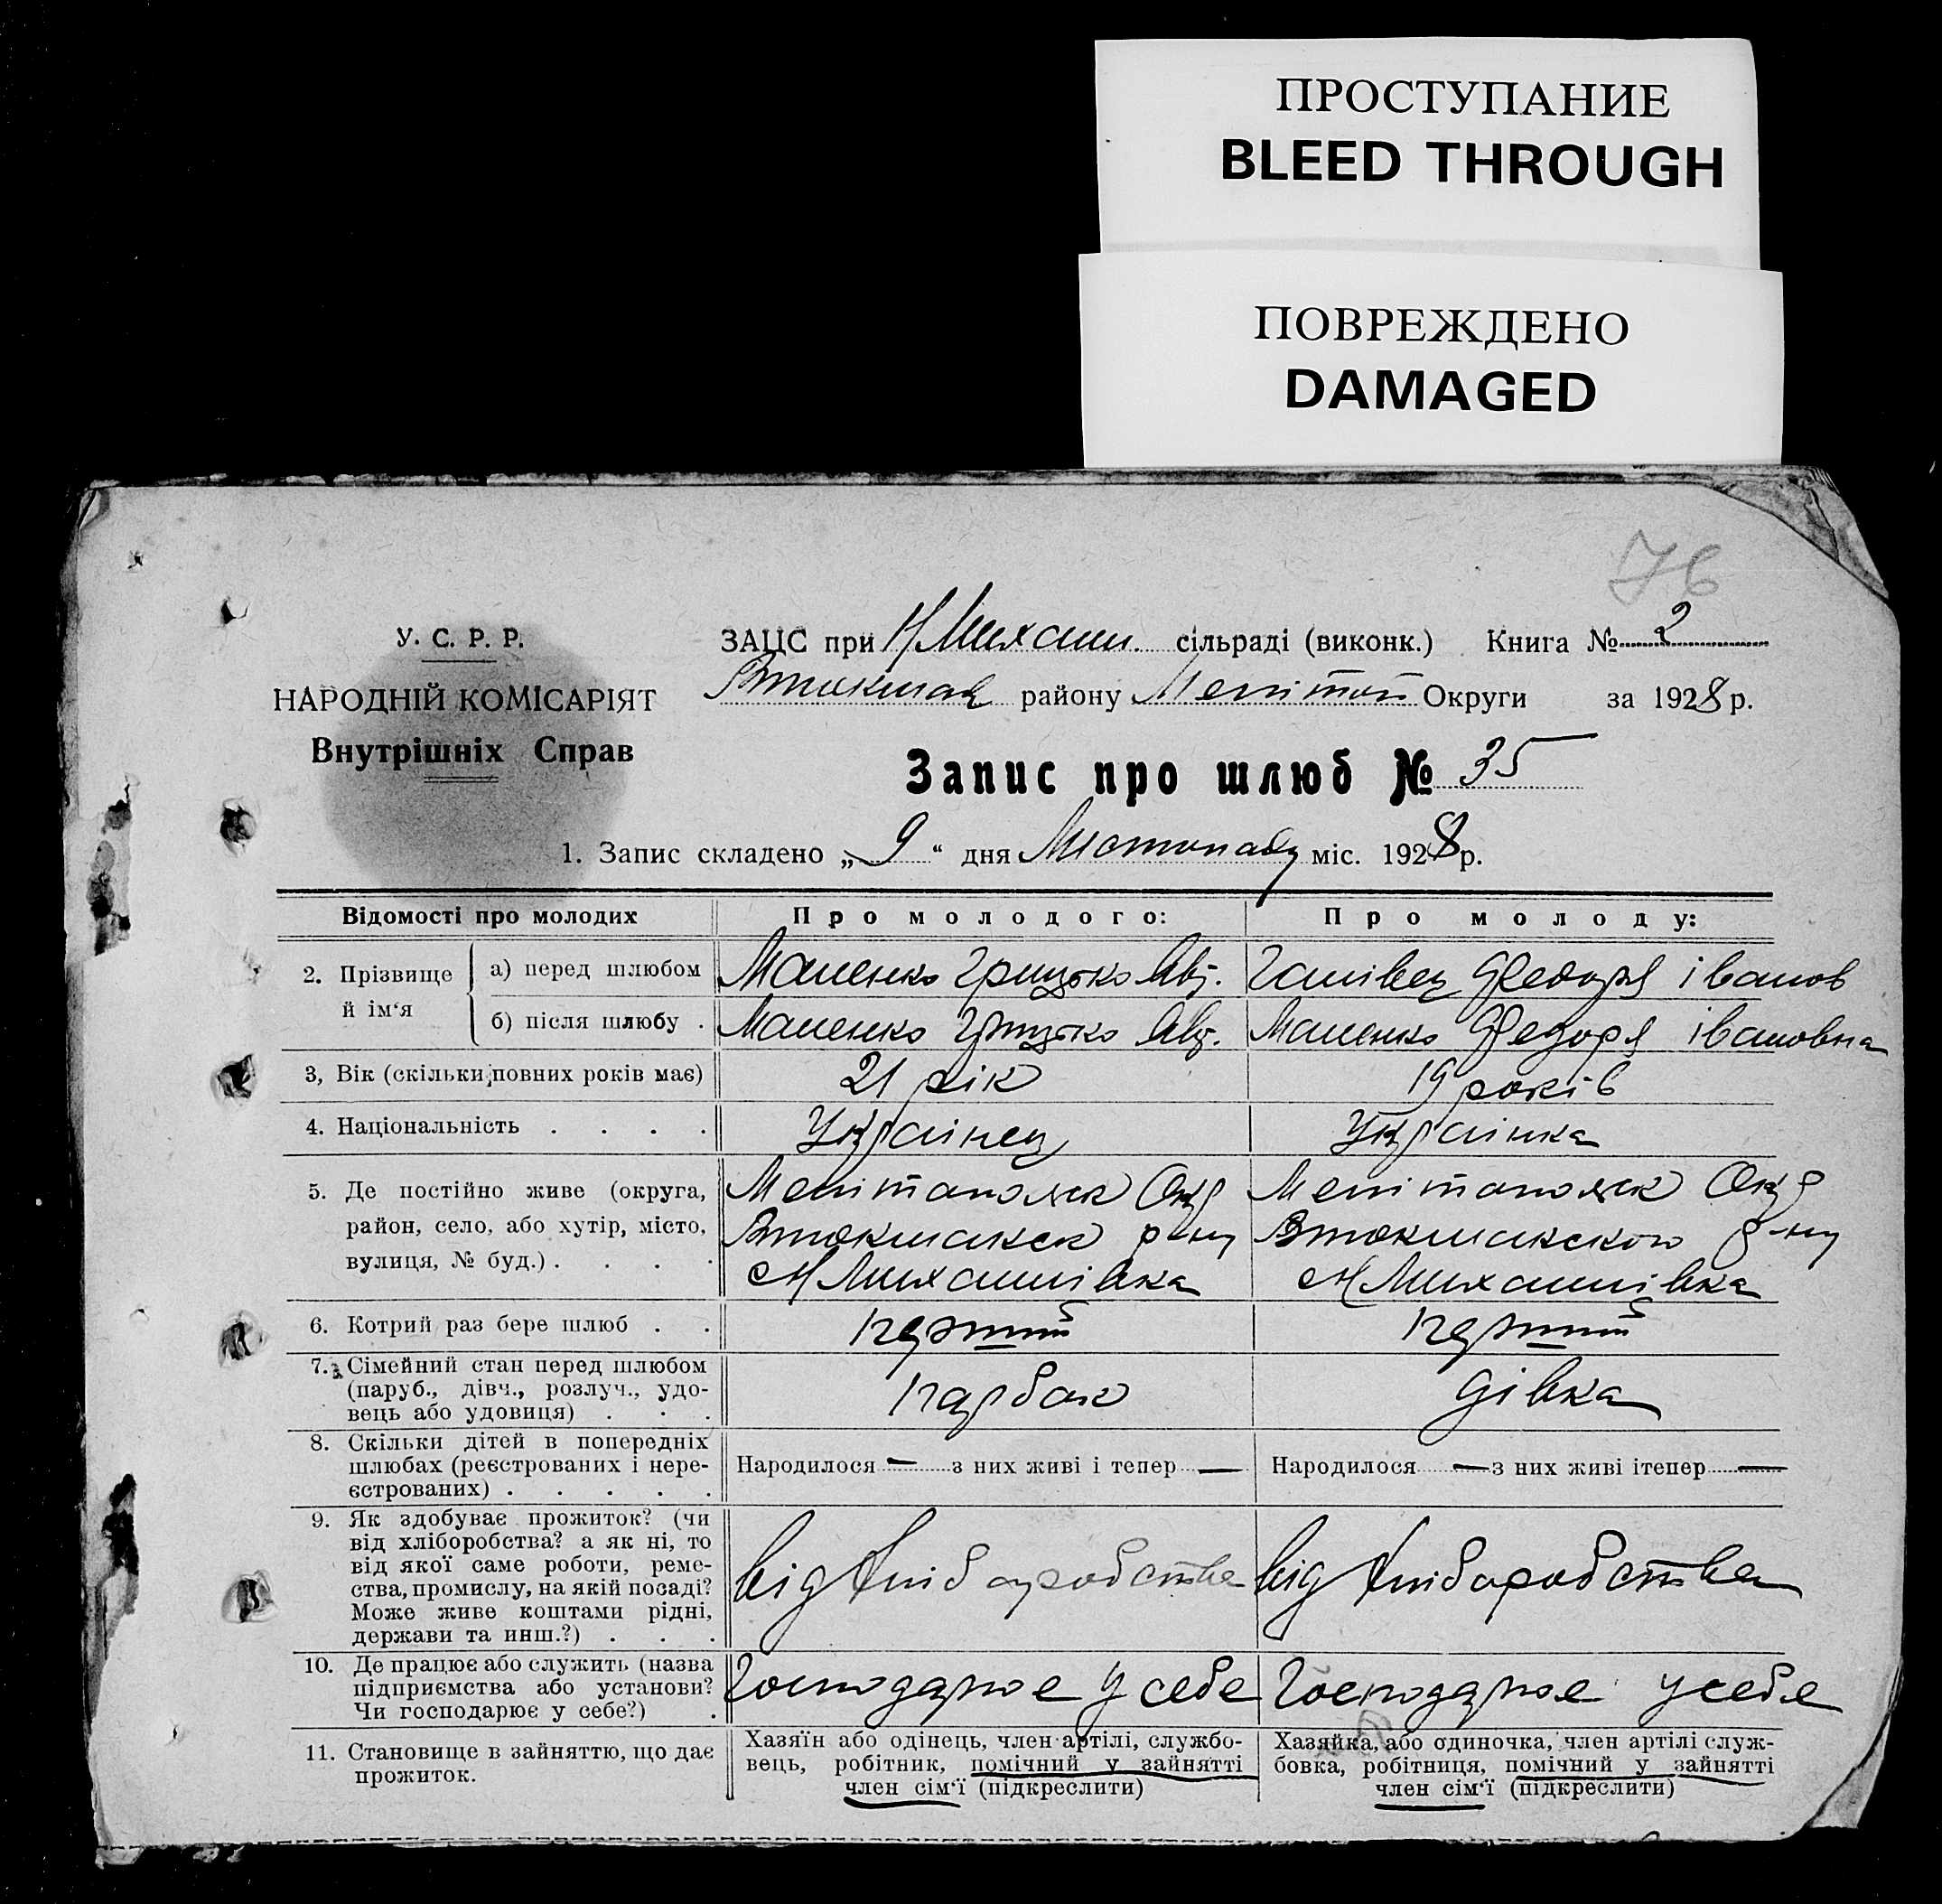 ПРОСТУПАНИЕ
BLEED THROUGH
ПОВРЕЖДЕНО
DAMAGED
76
У. С. Р. Р.
НАРОДНІЙ КОМІСАРІЯТ
Внутрішніх Справ
ЗАЦС при Н Михайл. сільраді (виконк.) Книга № 2
Втокмак району Меліт Округи за 1928 р.
Запис про шлюб № 35
1. Запис складено „ 9 “ дня Листопаду міс. 1928 р.
Відомості про молодих Про молодого: Про молоду:
2. Прізвище й ім‘я
а) перед шлюбом Маленко Грицько Федоря Іванов
б) після шлюбу . Маленко Грицько Маленко Федоря Івановна
3, Вік (скільки повних років має) 21 рік 19 років
4. Національність . . . . Українец Українка
5. Де постійно живе (округа,
район, село, або хутір, місто,
вулиця, № буд.) . . . .
Мелітопольск Окр
Втокмакск р-ну
с Н Михайлівка
Мелітопольск Окр
Втокмакского р-ну
с Н Михайлівка
6. Котрий раз бере шлюб . . перший перший
7. Сімейний стан перед шлюбом
(паруб., дівч., розлуч., удо-
вець або удовиця) . . .
парбок дівка
8. Скільки дітей в попередніх
шлюбах (реєстрованих і нере-
єстрованих) . . . . .
Народилося — з них живі і тепер — Народилося — з них живі ітепер —
9. Як здобуває прожиток? (чи
від хліборобства? а як ні, то
від якої саме роботи, реме-
ства, промислу, на якій посаді?
Може живе коштами рідні,
держави та инш.?) . . .
від хліборобства від хліборобства
10. Де працює або служить (назва
підприємства або установи?
Чи господарює у себе?) .
Господарює у себе Господарює у себе
11. Становище в зайняттю, що дає
прожиток.
Хазяїн або одінець, член артілі, службо-
вець, робітник, помічний у зайнятті
член сім‘ї (підкреслити)
Хазяйка, або одиночка, член артілі служ-
бовка, робітниця, помічний у зайнятті
член сім‘ї (підкреслити)